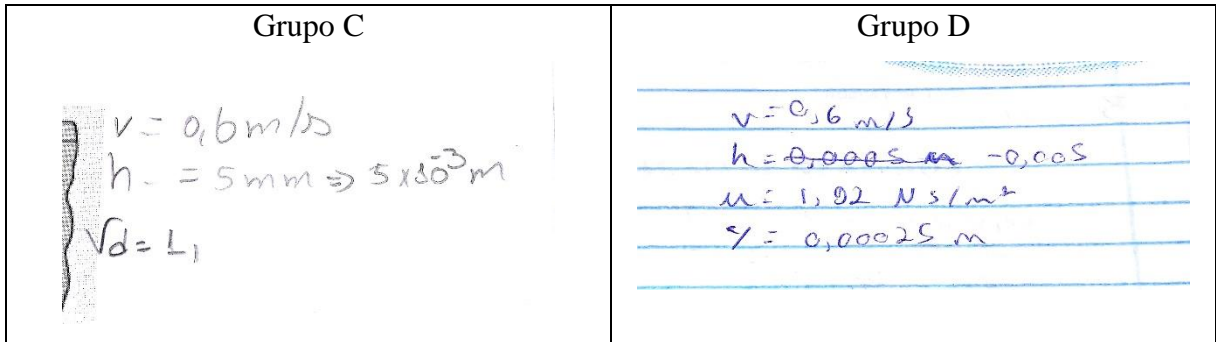 Grupo C
v = 0,6 m/s
h = 5 mm ⇒ 5x10⁻³ m
Vd = 1,
Grupo D
v = 0,6 m/s
h = 0,0005 m - 0,005
μ = 1,92 N s/m²
y = 0,00025 m